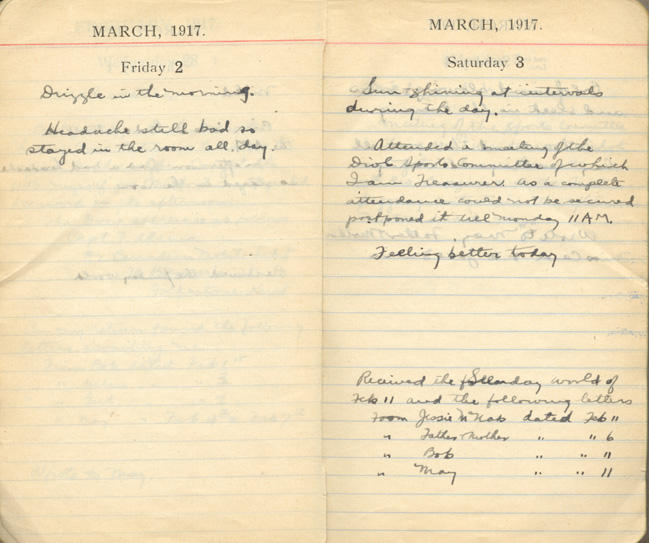 MARCH, 1917.
Friday 2
Drizzle in the morning.
Headache still bad so
stayed in the room all day.
MARCH, 1917.
Saturday 3
Sun shining at intervals
during the day.
Attended a meeting of the
Divn Sports Committee of which
I am Treasurer. As a complete
attendance could not be secured
postponed it till Monday 11 AM.
Feeling better today
Received the Sunday World of
Feb 11 and the following letters
From Jessie McNab dated Feb 11
" Father & Mother " " 6
" Bob " " 11
" May " " 11